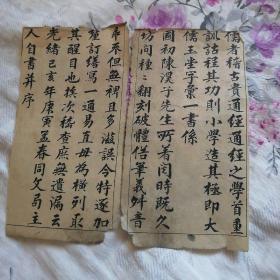 儒者稽古貴通經通經之學首重
訓詁程其功則小學造其極即大
儒玉堂字彙一書係
國初陳淏子先生所著閱時既久
坊間種々翻刻破體俗筆義舛音
乖不但無裨且多滋誤今特逐加
釐訂繕寫一通易直毋為橫列取
其醒目也挨次稽查庶無遺漏云
光緒己亥年庚寅孟春同文局主
人自書并序